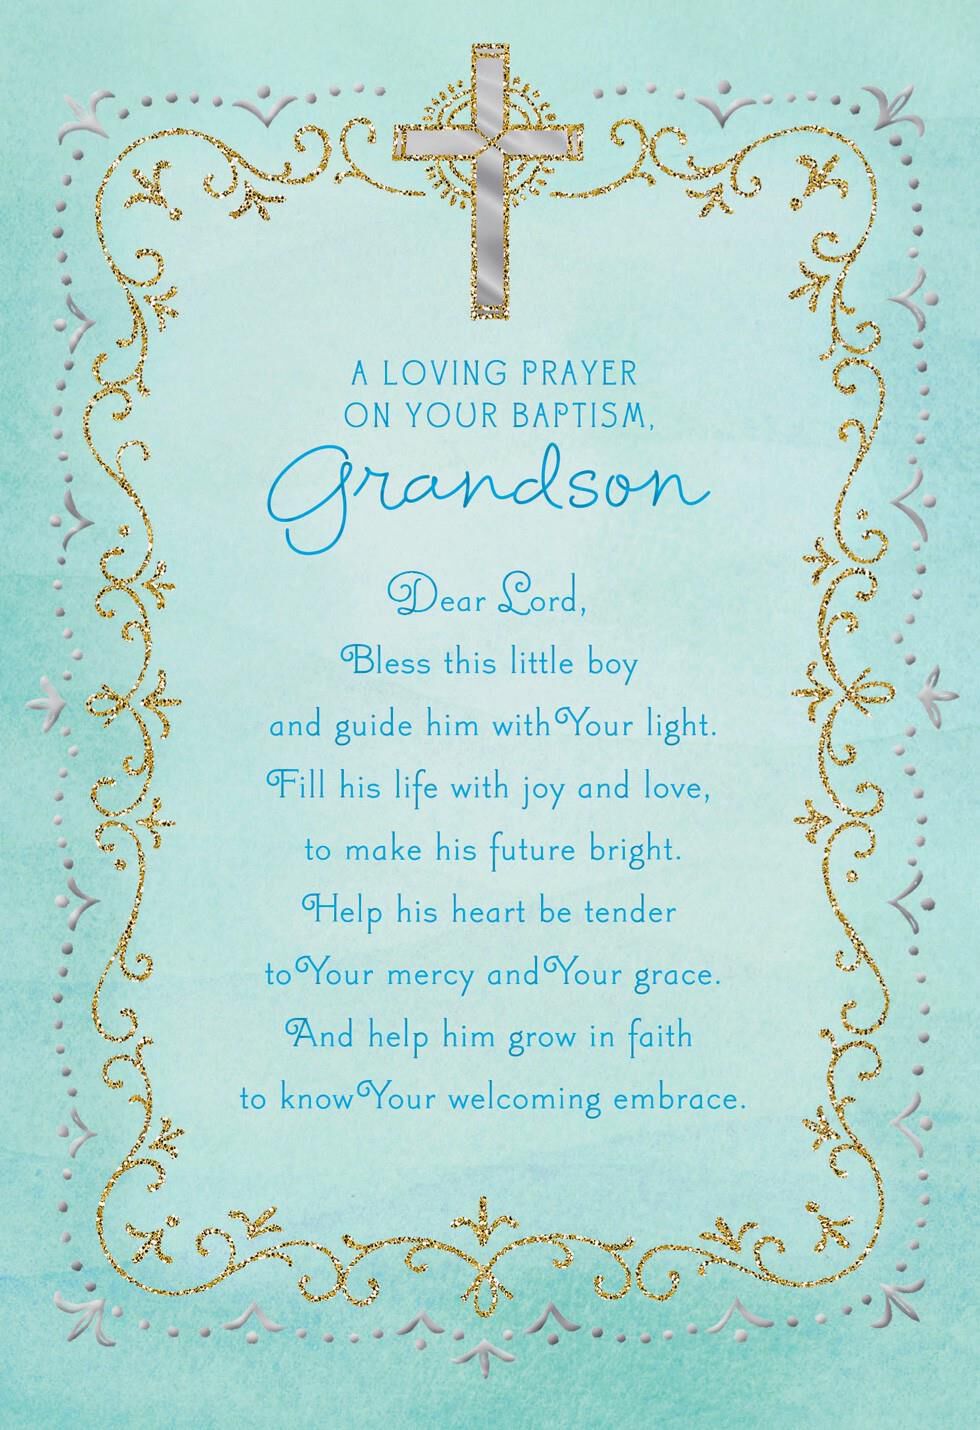 A LOVING PRAYER
ON YOUR BAPTISM,
Grandson
Dear Lord,
Bless this little boy
and guide him with Your light.
Fill his life with joy and love,
to make his future bright.
Help his heart be tender
to Your mercy and Your grace.
And help him grow in faith
to know Your welcoming embrace.